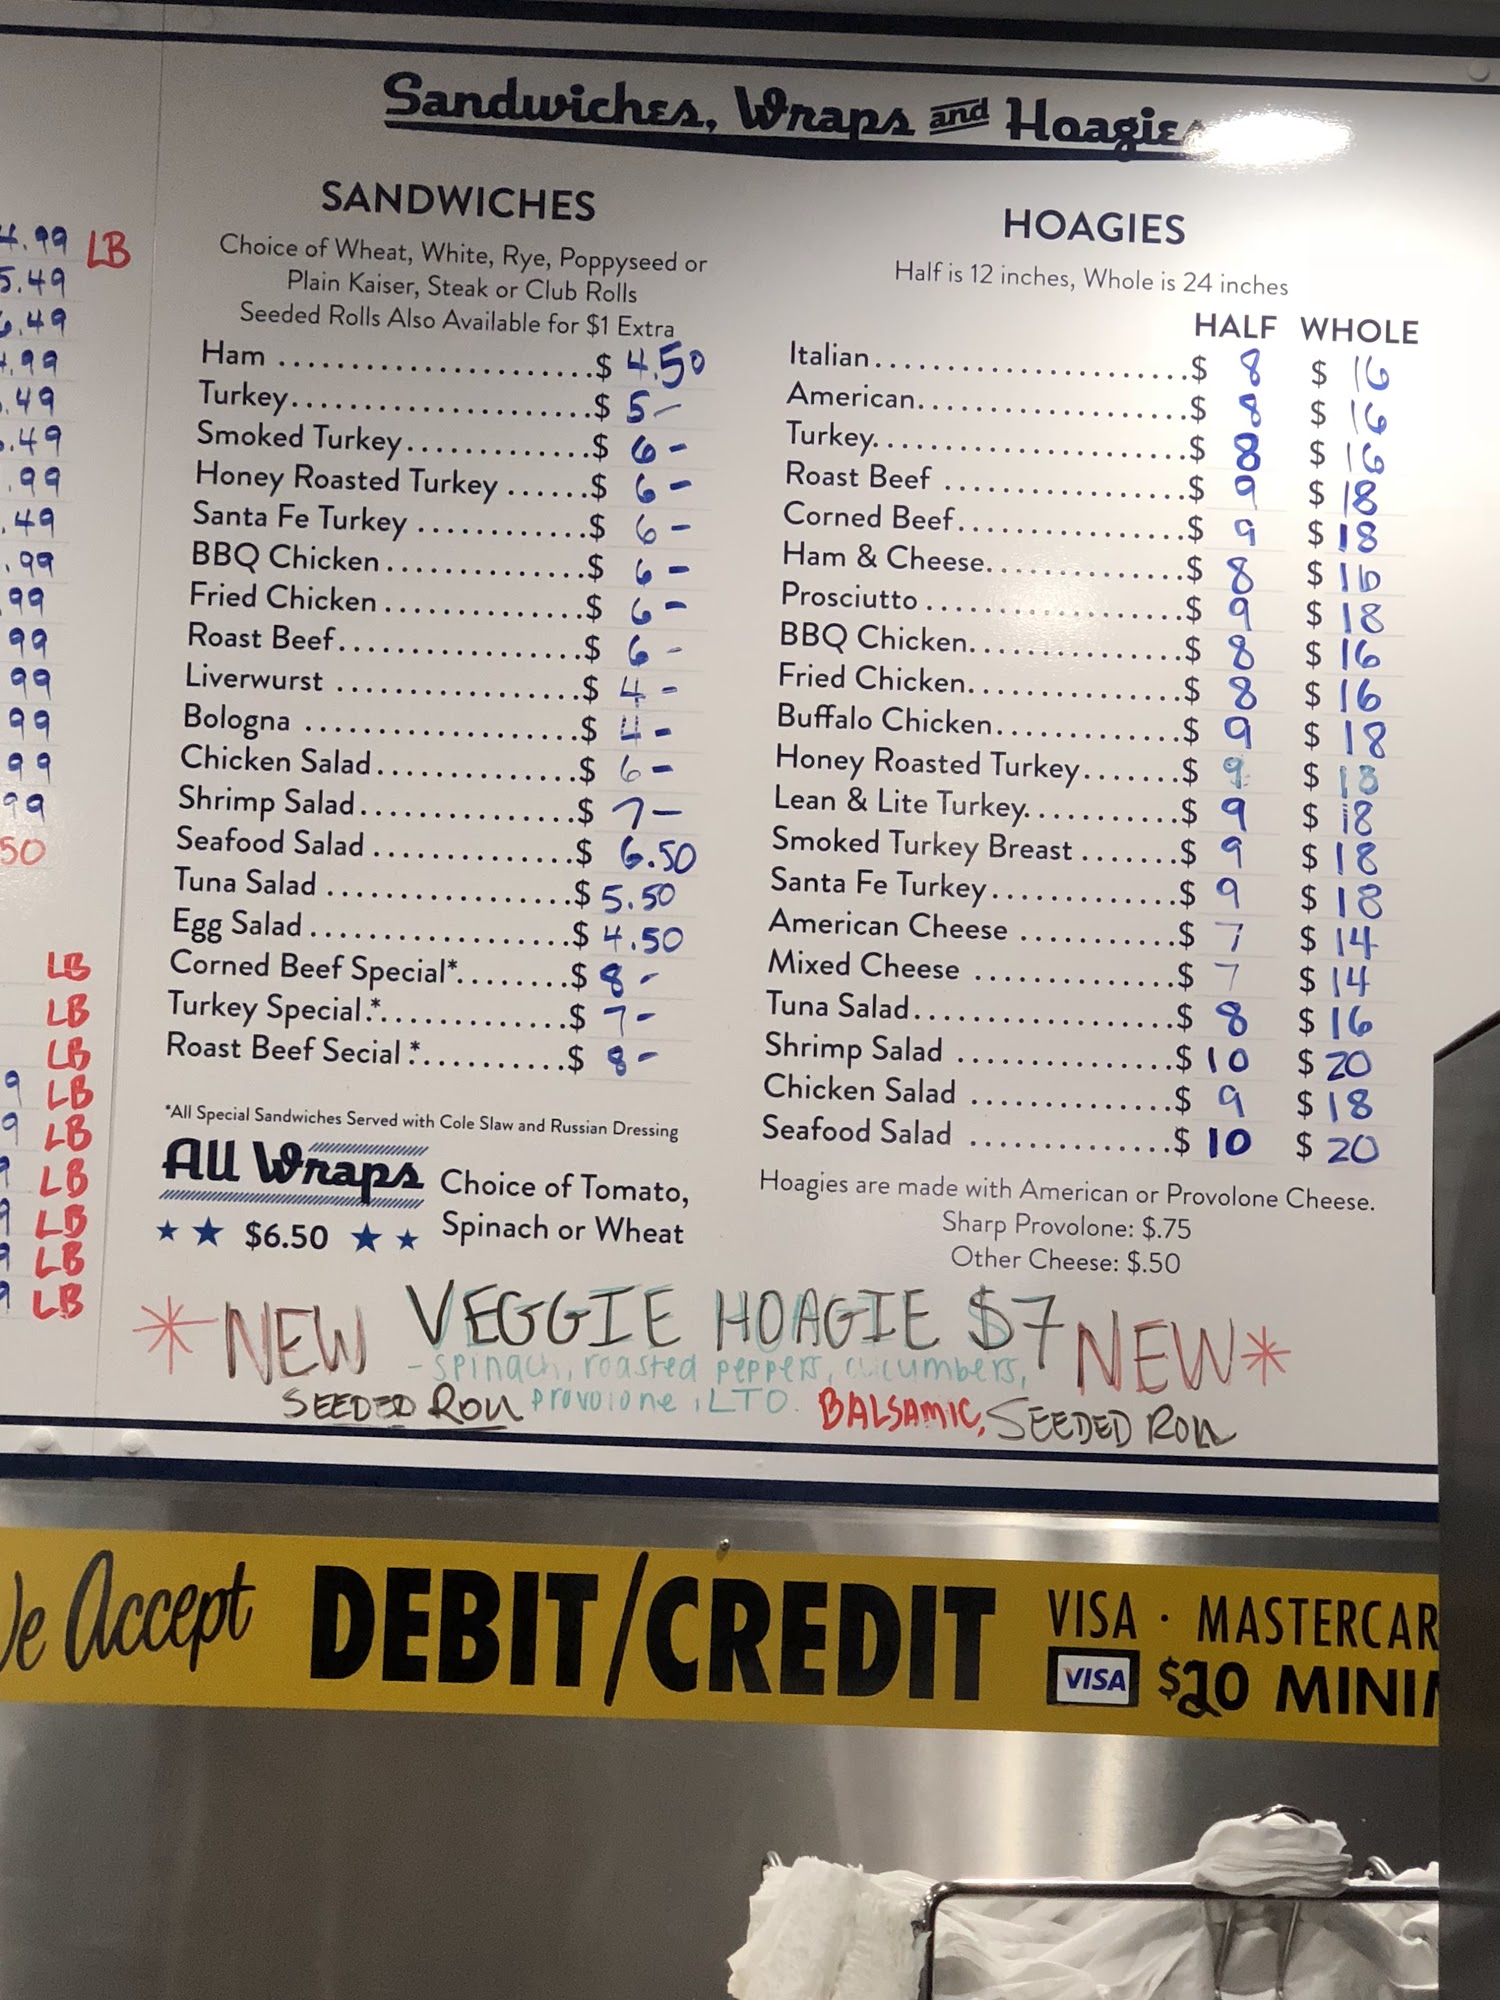 Sandwiches, Wraps and Hoagies
SANDWICHES
Choice of Wheat, White, Rye, Poppyseed or
Plain Kaiser, Steak or Club Rolls
Seeded Rolls Also Available for $1 Extra
Ham ......................$ 4.50
Turkey.....................$ 5-
Smoked Turkey...............$ 6-
Honey Roasted Turkey ......$ 6-
Santa Fe Turkey ............$ 6-
BBQ Chicken..............$ 6-
Fried Chicken..............$ 6-
Roast Beef.................$ 6-
Liverwurst .................$ 4-
Bologna ...................$ 4-
Chicken Salad..............$ 6-
Shrimp Salad...............$ 7-
Seafood Salad..............$ 6.50
Tuna Salad .................$ 5.50
Egg Salad..................$ 4.50
Corned Beef Special*........$ 8-
Turkey Special.*.............$ 7-
Roast Beef Secial.*..........$ 8-
*All Special Sandwiches Served with Cole Slaw and Russian Dressing
All Wraps
$6.50
Choice of Tomato,
Spinach or Wheat
HOAGIES
Half is 12 inches, Whole is 24 inches
HALF WHOLE
Italian.......................$ 8 $ 16
American...................$ 8 $ 16
Turkey.....................$ 8 $ 16
Roast Beef .................$ 9 $ 18
Corned Beef................$ 9 $ 18
Ham & Cheese..............$ 8 $ 16
Prosciutto ..................$ 9 $ 18
BBQ Chicken...............$ 8 $ 16
Fried Chicken...............$ 8 $ 16
Buffalo Chicken.............$ 9 $ 18
Honey Roasted Turkey.......$ 9 $ 18
Lean & Lite Turkey...........$ 9 $ 18
Smoked Turkey Breast .......$ 9 $ 18
Santa Fe Turkey.............$ 9 $ 18
American Cheese ...........$ 7 $ 14
Mixed Cheese ..............$ 7 $ 14
Tuna Salad..................$ 8 $ 16
Shrimp Salad ...............$ 10 $ 20
Chicken Salad ..............$ 9 $ 18
Seafood Salad ..............$ 10 $ 20
Hoagies are made with American or Provolone Cheese.
Sharp Provolone: $.75
Other Cheese: $.50
*NEW VEGGIE HOAGIE $7 NEW*
- spinach, roasted peppers, cucumbers,
SEEDED ROLL provolone, LTO. BALSAMIC, SEEDED ROLL
4.99 LB
5.49
6.49
.99
.49
.49
.99
.49
.99
99
99
99
99
99
99
50
LB
LB
LB
9 LB
9 LB
9 LB
9 LB
9 LB
9 LB
We Accept DEBIT/CREDIT VISA · MASTERCAR
VISA $20 MINI